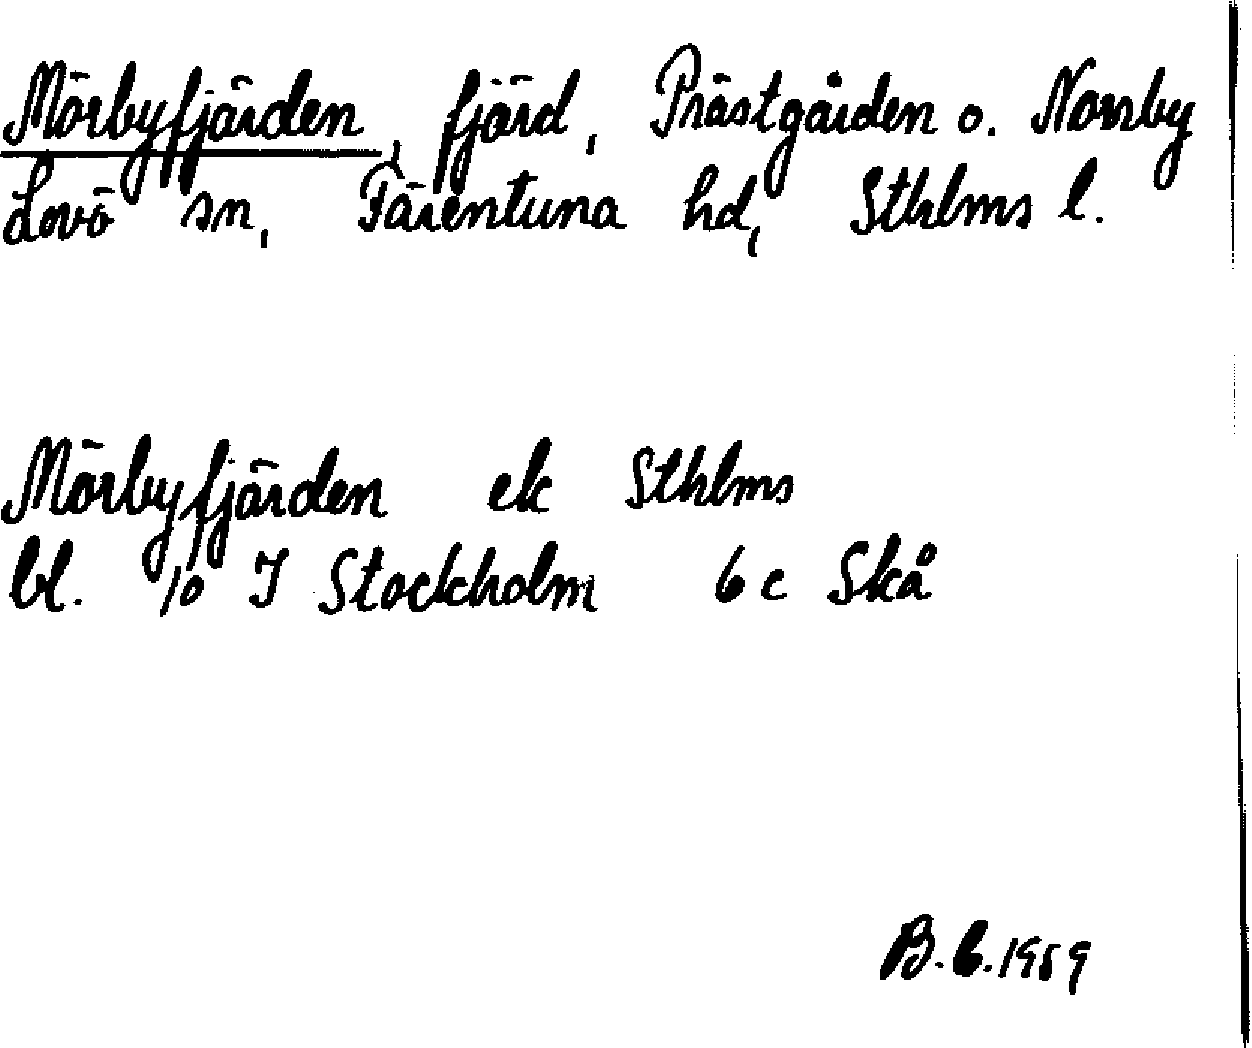 Mörbyfjärden, fjärd, Prästgården o. Norrby
Lovö sn, Färentuna hd, Sthlms l.
Mörbyfjärden ek Sthlms
bl. 10 I Stockholm 6 c Skå
B.C.1959